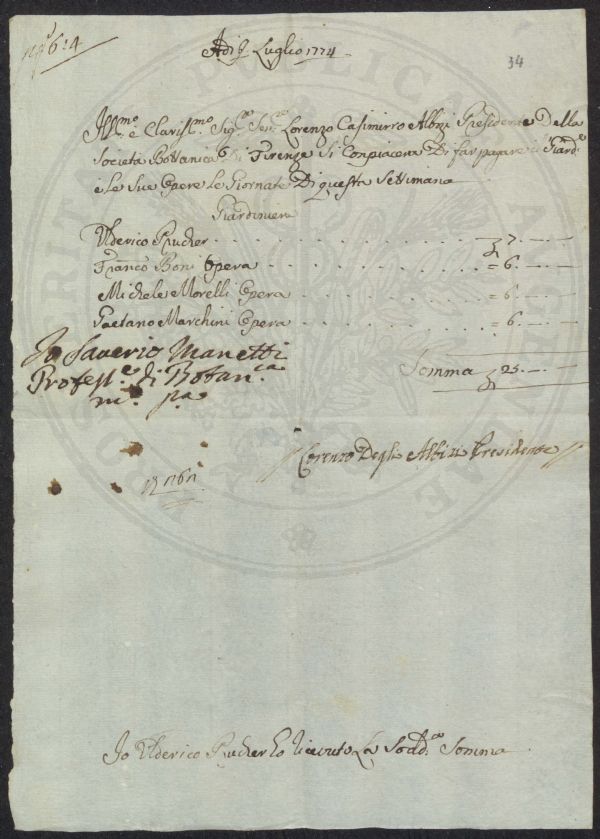 nº 6:4
Adi 9 Luglio 1774
34
Ill.mo e Claris.mo Sig.re Sen.re Lorenzo Casimirro Albizi Presidente Della
Società Bottanica Di Firenze Si Conpiacera Di far pagare a Giard.e
e le Sue Opere le Giornate Di questa Settimana
Giardiniera
Ulderico Prucher . . . . . . . . . . 7. — –
Franco Boni Opera . . . . . . . . . = 6. — –
Michele Morelli Opera . . . . . . . . = 6. — –
Gaetano Marchini Opera . . . . . . . . = 6. — –
Io Saverio Manetti
Profess.e di Botan.ca
m.o p.a
Somma 25. — –
Lorenzo Degli Albizi Presidente
Io Ulderico Prucher ho ricevuto La Sod.a Somma
PUBLICAE